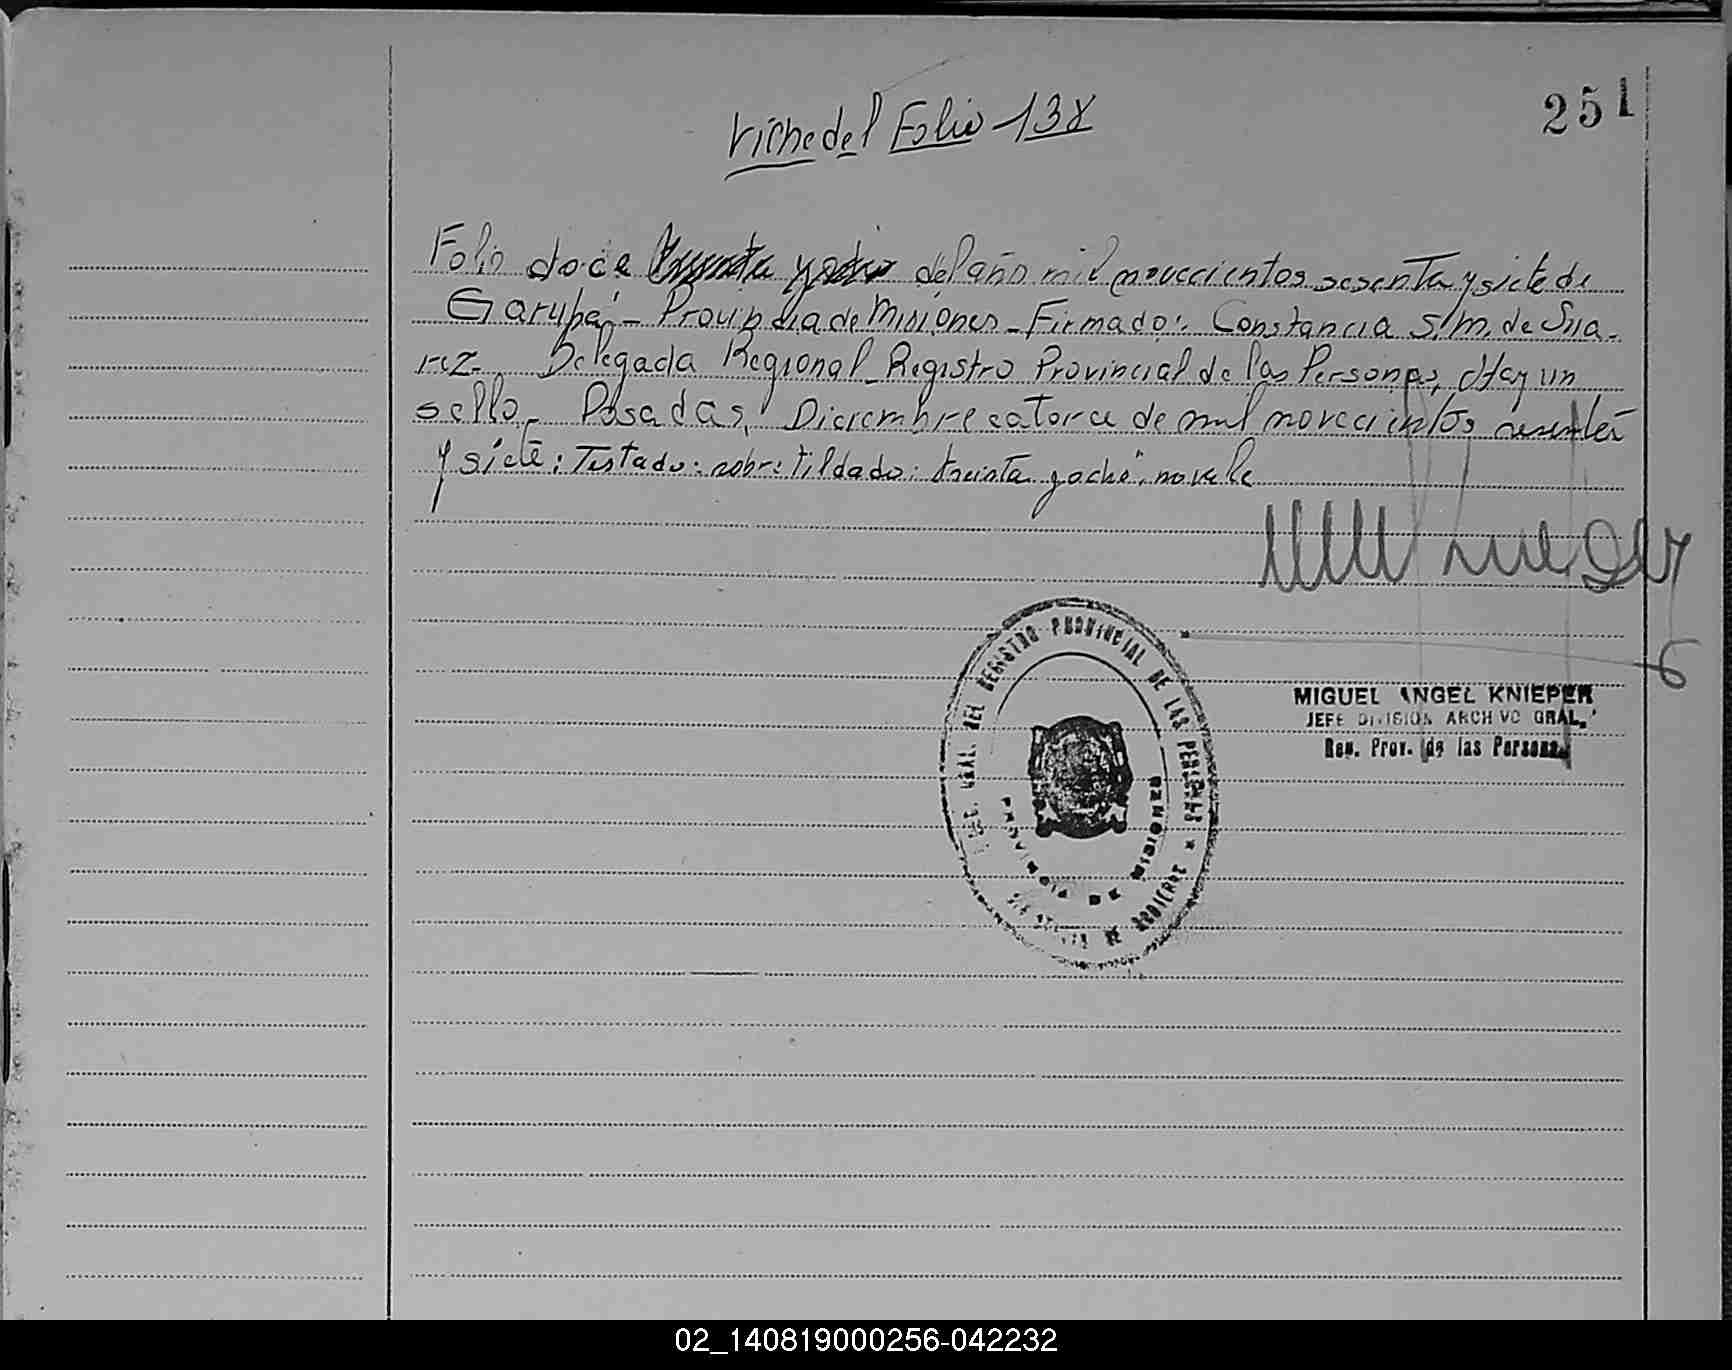 251
Viene del Folio 138
Folio doce treinta y ocho del año mil novecientos sesenta y siete de
Garupá - Provincia de Misiones - Firmado: Constancia S. M. de Sua-
rez. Delegada Regional - Registro Provincial de las Personas, Hay un
sello - Posadas, Diciembre catorce de mil novecientos sesenta
y siete: Testado: sobre: tildado: treinta y ocho", no vale
DEL REGISTRO PROVINCIAL DE LAS PERSONAS * GOBIERNO
PROVINCIA DE MISIONES
MIGUEL ANGEL KNIEPER
JEFE DIVISION ARCHIVO GRAL.
Reg. Prov. de las Personas
02_140819000256-042232